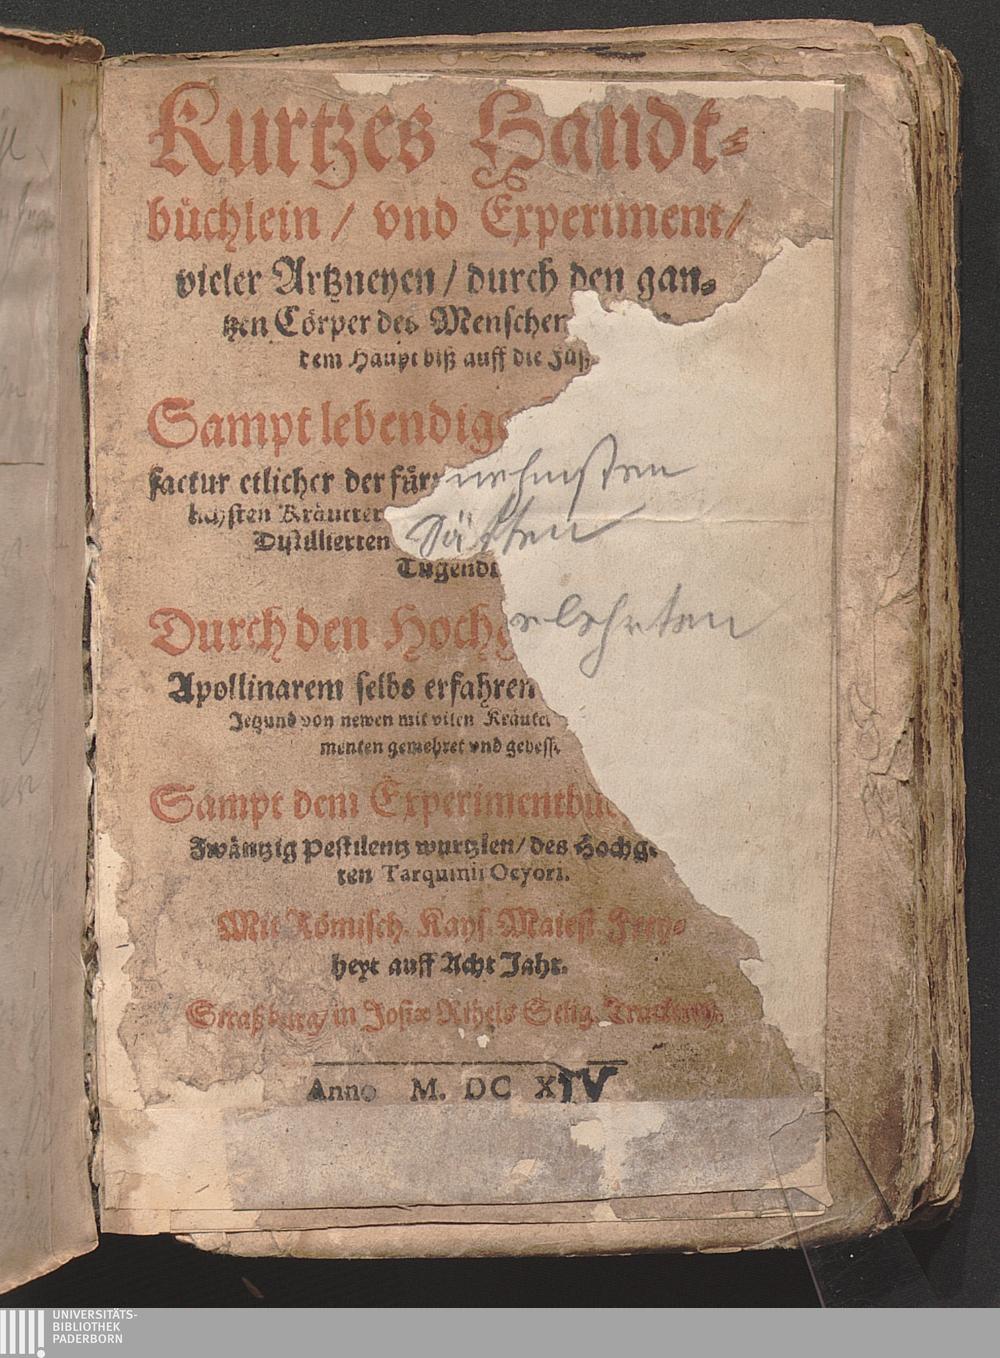 Kurtzes Handt-
buͤchlein / vnd Experiment /
vieler Artzneyen / durch den gan-
tzen Coͤrper des Menschen
dem Haupt biß auff die Fuͤß
Sampt lebendige
factur etlicher der fuͤr nehmsten
Kraͤutter
Distillierten Säften
Tugendt
Durch den Hochg elehrten
Apollinarem selbs erfahren
Jetzund von newen mit vilen Kraͤuter
menten gemehret vnd gebess
Sampt dem Experimentbuͤ
Zwaͤntzig Pestilentz wurtzlen / des Hochg
ten Tarquinii Ocyori.
Mit Roͤmisch. Kays. Maiest. Frey-
heyt auff Acht Jahr.
Straßburg / in Josiæ Rihels Selig. Truckerey.
Anno M. DC XIV
UNIVERSITÄTS-
BIBLIOTHEK
PADERBORN